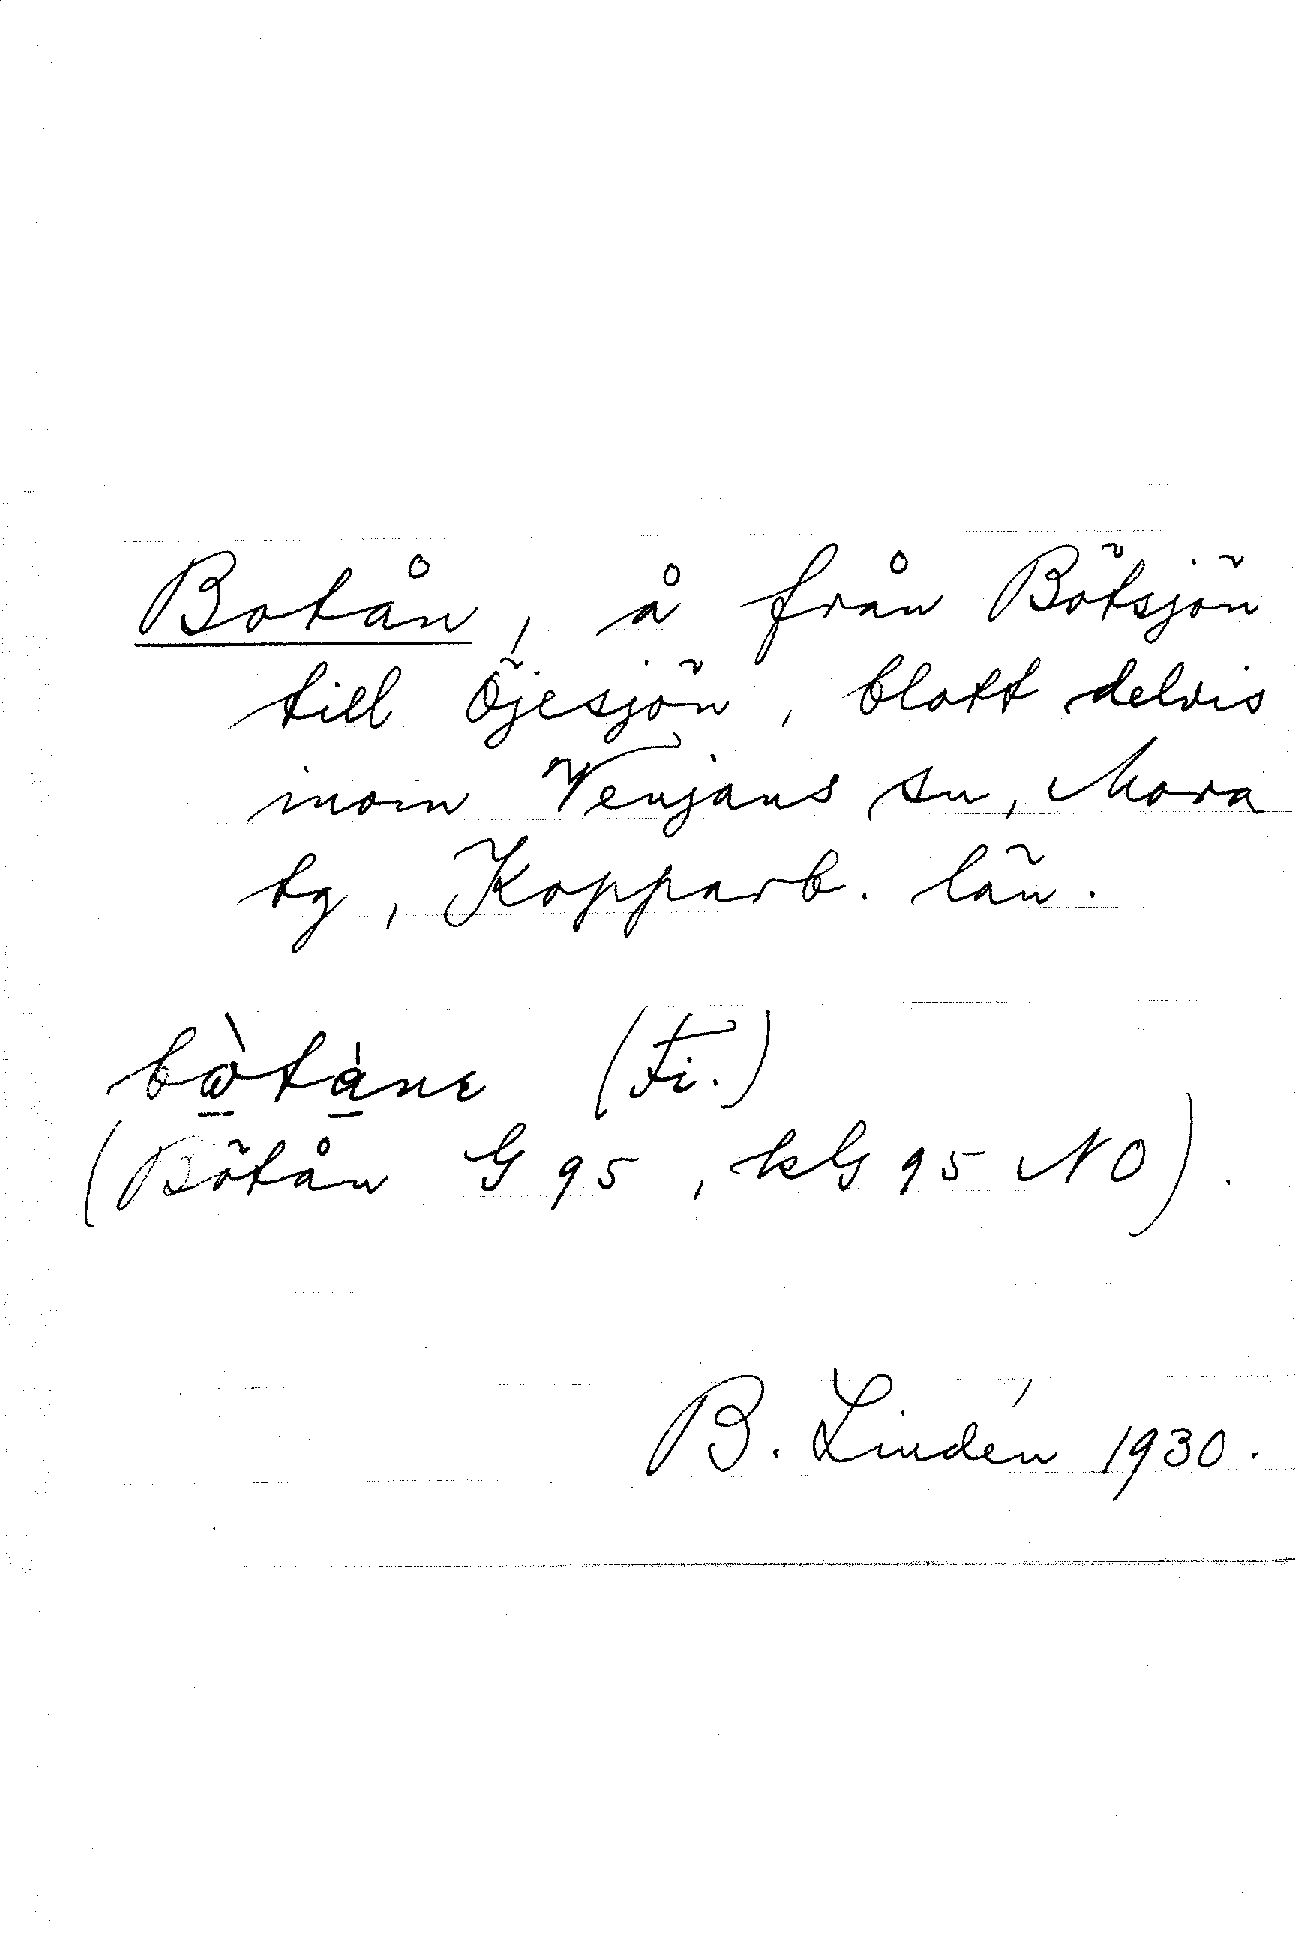 Botån, å från Bötsjön
till Öjesjön, blott delvis
inom Venjans sn, Mora
tg, Kopparb. län.
bὼtànɛ (Fi.)
(Bötån G 95, kG 95 NO).
B. Lindén 1930.